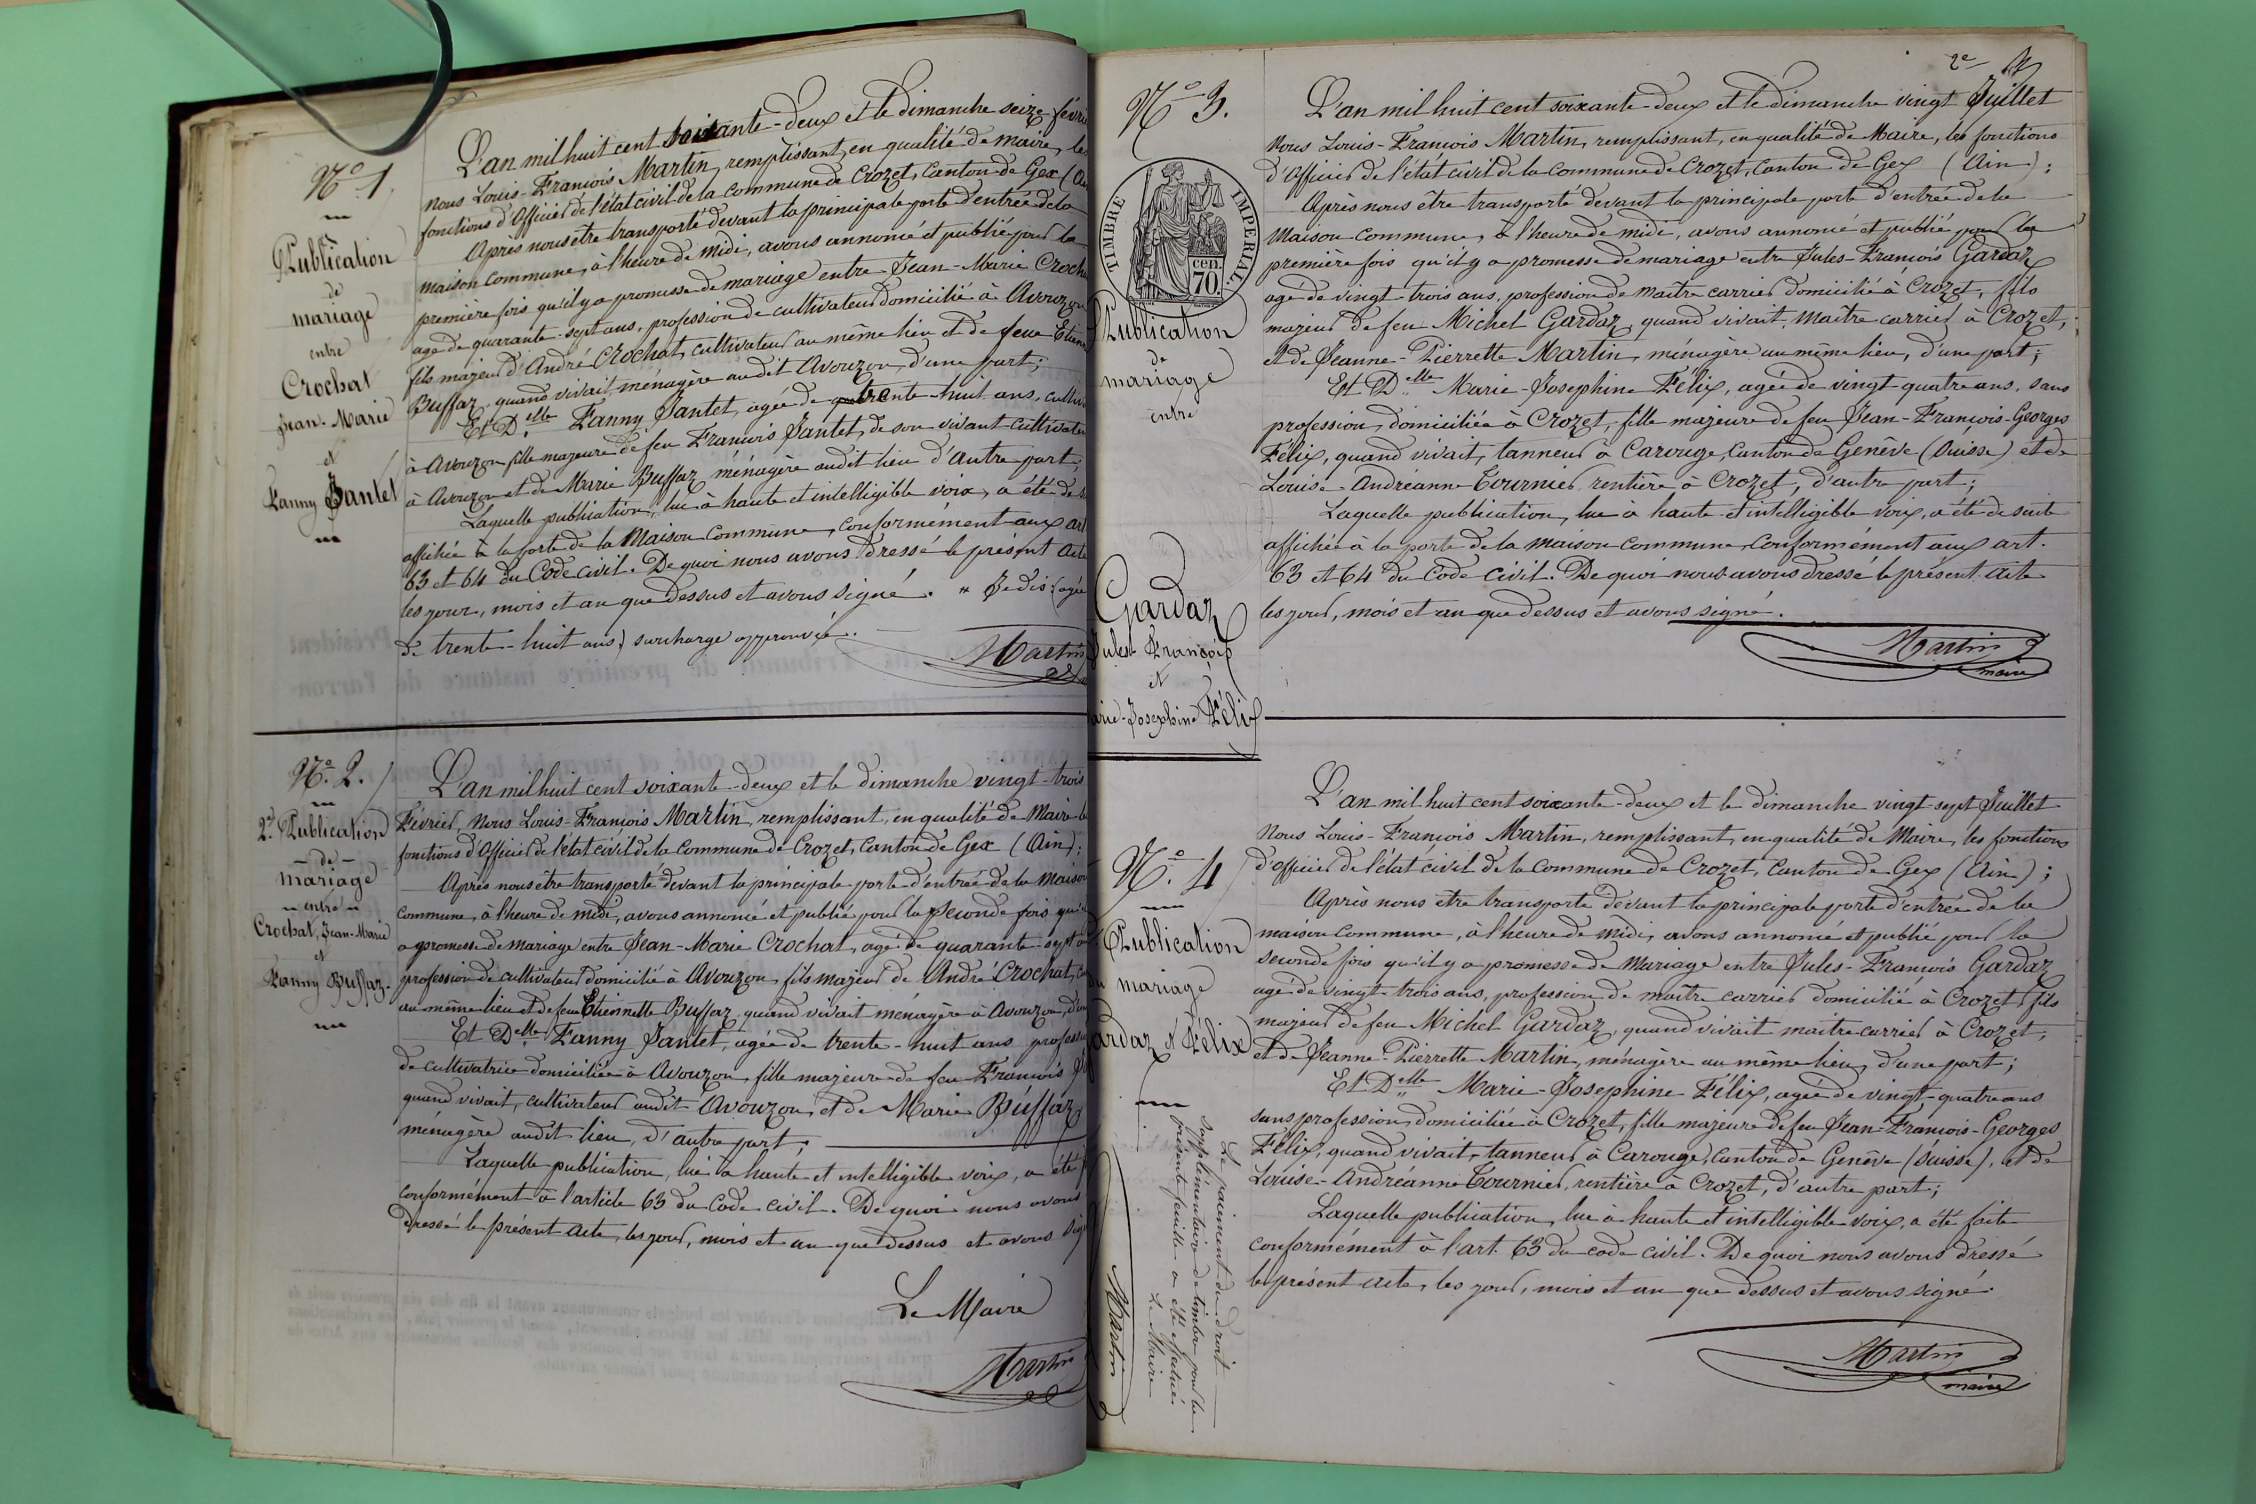 N° 1.
Publication
de
mariage
entre
Crochat
Jean-Marie
et
Fanny Jantet
L'an mil huit cent soixante-deux et le dimanche seize févri
nous Louis-François Martin, remplissant, en qualité de maire, les
fonctions d'Officier de l'état civil de la commune de Crozet, Canton de Gex (Ai
Après nous être transporté devant la principale porte d'entrée de la
maison commune, à l'heure de midi, avons annoncé et publié pour la
première fois qu'il y a promesse de mariage entre Jean-Marie Croch
agé de quarante-sept ans, profession de cultivateur domicilié à Avouzon
fils majeur d'André Crochat, cultivateur au même lieu et de feue Etien
Buffaz, quand vivait, ménagère audit Avouzon, d'une part;
Et Delle Fanny Jantet, agée de trente-huit ans, cultiv
à Avouzon fille majeure de feu François Jantet, de son vivant cultivateu
à Avouzon et de Marie Buffaz ménagère audit lieu d'autre part;
Laquelle publication, lue à haute et intelligible voix, a été de s
affichée à la porte de la Maison commune, conformément aux art
63 et 64 du Code civil. De quoi nous avons dressé le présent acte
les jour, mois et an que dessus et avons signé. " Je dis (agée
de trente-huit ans) surcharge approuvée.
Martin
N° 2.
2e Publication
de
mariage
entre
Crochat, Jean-Marie
et
Fanny Buffaz.
L'an mil huit cent soixante-deux et le dimanche vingt-trois
Février, Nous Louis-François Martin, remplissant, en qualité de Maire le
fonctions d'Officier de l'état civil de la Commune de Crozet, Canton de Gex (Ain);
Après nous être transporté devant la principale porte d'entrée de la maison
commune, à l'heure de midi, avons annoncé et publié pour la seconde fois qu'i
a promesse de mariage entre Jean-Marie Crochat, agé de quarante-sept a
profession de cultivateur domicilié à Avouzon, fils majeur de André Crochat, cu
au même lieu et de feue Etiennette Buffaz, quand vivait ménagère à Avouzon, d'un
Et Delle Fanny Jantet, agée de trente-huit ans profess
de cultivatrice domiciliée à Avouzon, fille majeure de feu François J
quand vivait, cultivateur audit Avouzon, et de Marie Buffaz
ménagère audit lieu, d'autre part;
Laquelle publication, lue à haute et intelligible voix, a été f
conformément à l'article 63 du Code civil. De quoi nous avons
dressé le présent acte, les jour, mois et an que dessus et avons sig
Le Maire
Martin
2e
N° 3.
TIMBRE IMPERIAL
70 cen.
Publication
de
mariage
entre
Gardaz
Jules François
et
arie-Josephine Félix
L'an mil huit cent soixante-deux et le dimanche vingt Juillet
Nous Louis-François Martin, remplissant, en qualité de Maire, les fonctions
d'Officier de l'état civil de la commune de Crozet, canton de Gex (Ain);
Après nous être transporté devant la principale porte d'entrée de la
Maison commune, à l'heure de midi, avons annoncé et publié pour la
première fois qu'il y a promesse de mariage entre Jules-François Gardaz
agé de vingt-trois ans, profession de maître carrier domicilié à Crozet, fils
majeur de feu Michel Gardaz, quand vivait, maître carrier à Crozet,
et de Jeanne-Pierrette Martin, ménagère au même lieu, d'une part;
Et Delle Marie-Josephine Félix, agée de vingt-quatre ans, sans
profession, domiciliée à Crozet, fille majeure de feu Jean-François-Georges
Félix, quand vivait, tanneur à Carouge, Canton de Genève (Suisse) et de
Louise-Andréanne Tournier, rentière à Crozet, d'autre part;
Laquelle publication, lue à haute et intelligible voix, a été de suite
affichée à la porte de la maison commune, conformément aux art.
63 et 64 du Code civil. De quoi nous avons dressé le présent acte
les jour, mois et an que dessus et avons signé.
Martin
maire
N° 4
Publication
mariage
ardaz et Félix
Le paiement du droit
supplémentaire de timbre pour la
présente feuille a été effectué
Le Maire
Martin
L'an mil huit cent soixante-deux et le dimanche vingt-sept Juillet
Nous Louis-François Martin, remplissant, en qualité de Maire, les fonctions
d'officier de l'état civil de la Commune de Crozet, Canton de Gex (Ain);
Après nous être transporté devant la principale porte d'entrée de la
maison commune, à l'heure de midi, avons annoncé et publié pour la
seconde fois qu'il y a promesse de Mariage entre Jules-François Gardaz
agé de vingt-trois ans, profession de maître carrier domicilié à Crozet fils
majeur de feu Michel Gardaz, quand vivait maître carrier à Crozet,
et de Jeanne-Pierrette Martin, ménagère au même lieu, d'une part;
Et Delle Marie-Josephine Félix, agée de vingt-quatre ans
sans profession, domiciliée à Crozet, fille majeure de feu Jean-François-Georges
Félix, quand vivait, tanneur à Carouge, Canton de Genève (Suisse), et de
Louise-Andréanne Tournier, rentière à Crozet, d'autre part;
Laquelle publication, lue à haute et intelligible voix, a été faite
conformément à l'art. 63 du code civil. De quoi nous avons dressé
le présent acte, les jour, mois et an que dessus et avons signé.
Martin
maire